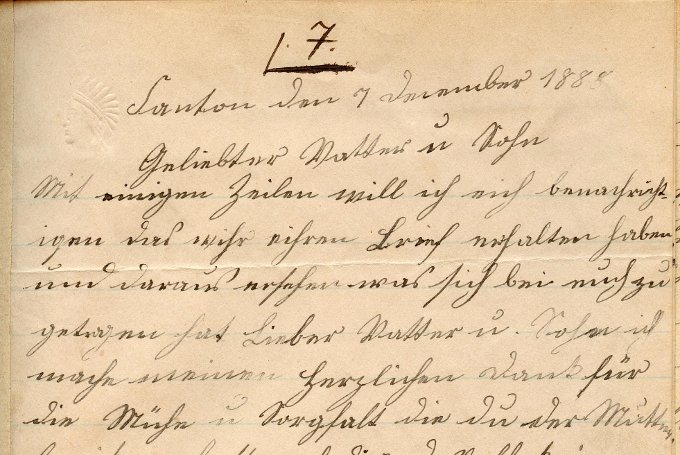 7.
Canton den 7 December 1888
Geliebter Vatter u Sohn
Mit einigen Zeilen will ich eich benachricht-
igen das wihr eihren Brief erhalten haben
und daraus ersehen was sich bei euch zu
getragen hat Lieber Vatter u. Sohn ich
mache meinen Herzlichen Dank für
die Mühe u Sorgfalt die du der Mutter